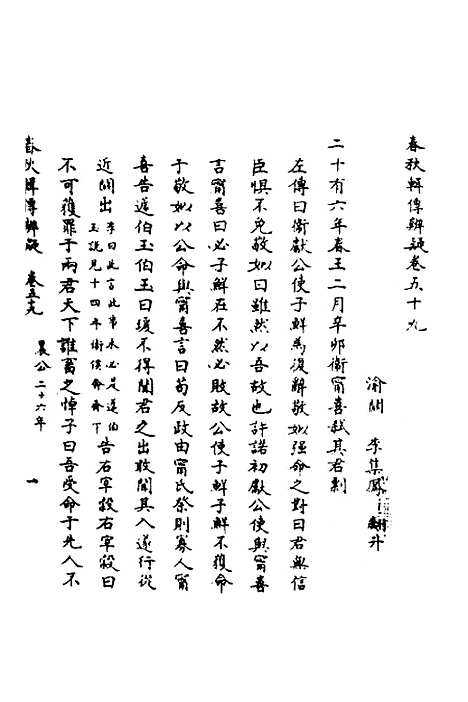 春秋輯傳辨疑卷五十九
渝關 李集鳳 翽升
二十有六年春王二月辛卯衛甯喜弒其君剽
左傳曰衛獻公使子鮮為復辭敬姒强命之對曰君無信
臣懼不免敬姒曰雖然以吾故也許諾初獻公使與甯喜
言甯喜曰必子鮮在不然必敗故公使子鮮子鮮不獲命
于敬姒以公命與甯喜言曰苟反政由甯氏祭則寡人甯
喜告蘧伯玉伯玉曰瑗不得聞君之出敢聞其入遂行從
近關出 李曰此言此事未必是蘧伯玉說見十四年衛侯奔齊下 告右宰穀右宰穀曰
不可獲罪于兩君天下誰畜之悼子曰吾受命于先人不
春秋輯傳辨疑 卷五十九
襄公 二十六年
一